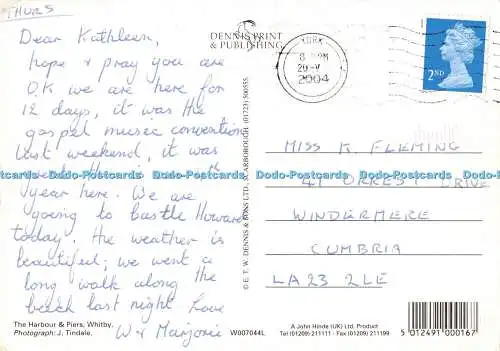 THURS
Dear Kathleen,
hope & pray you are
O.K we are here for
12 days, it was the
gospel music convention
last weekend, it was
year here. We are
going to Castle Howard
today. The weather is
beautiful; we went a
long walk along the
beach last night Love
W & Marjorie
The Harbour & Piers, Whitby.
Photograph: J. Tindale.
DENNIS PRINT
& PUBLISHING
© E. T. W. DENNIS & SONS LTD., SCARBOROUGH (01723) 500555
W007044L
YORK
8 PM
20-V
2004
2ND
MISS K. FLEMING
41 ORREST DRIVE
WINDERMERE
CUMBRIA
LA23 2LE
A John Hinde (UK) Ltd. Product
Tel (01209) 211111 · Fax (01209) 211199
5 012491 000167
Dodo-Postcards Dodo-Postcards Dodo-Postcards Dodo-Postcards Dodo-Postcards